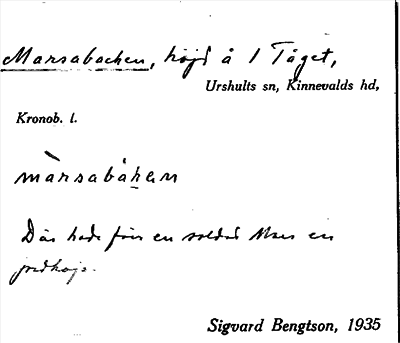 Marsabacken, höjd å 1 Tåget,
Urshults sn, Kinnevalds hd,
Kronob. l.
màrsabáken
Där hade förr en soldat Mars en
jordkoja.
Sigvard Bengtson, 1935